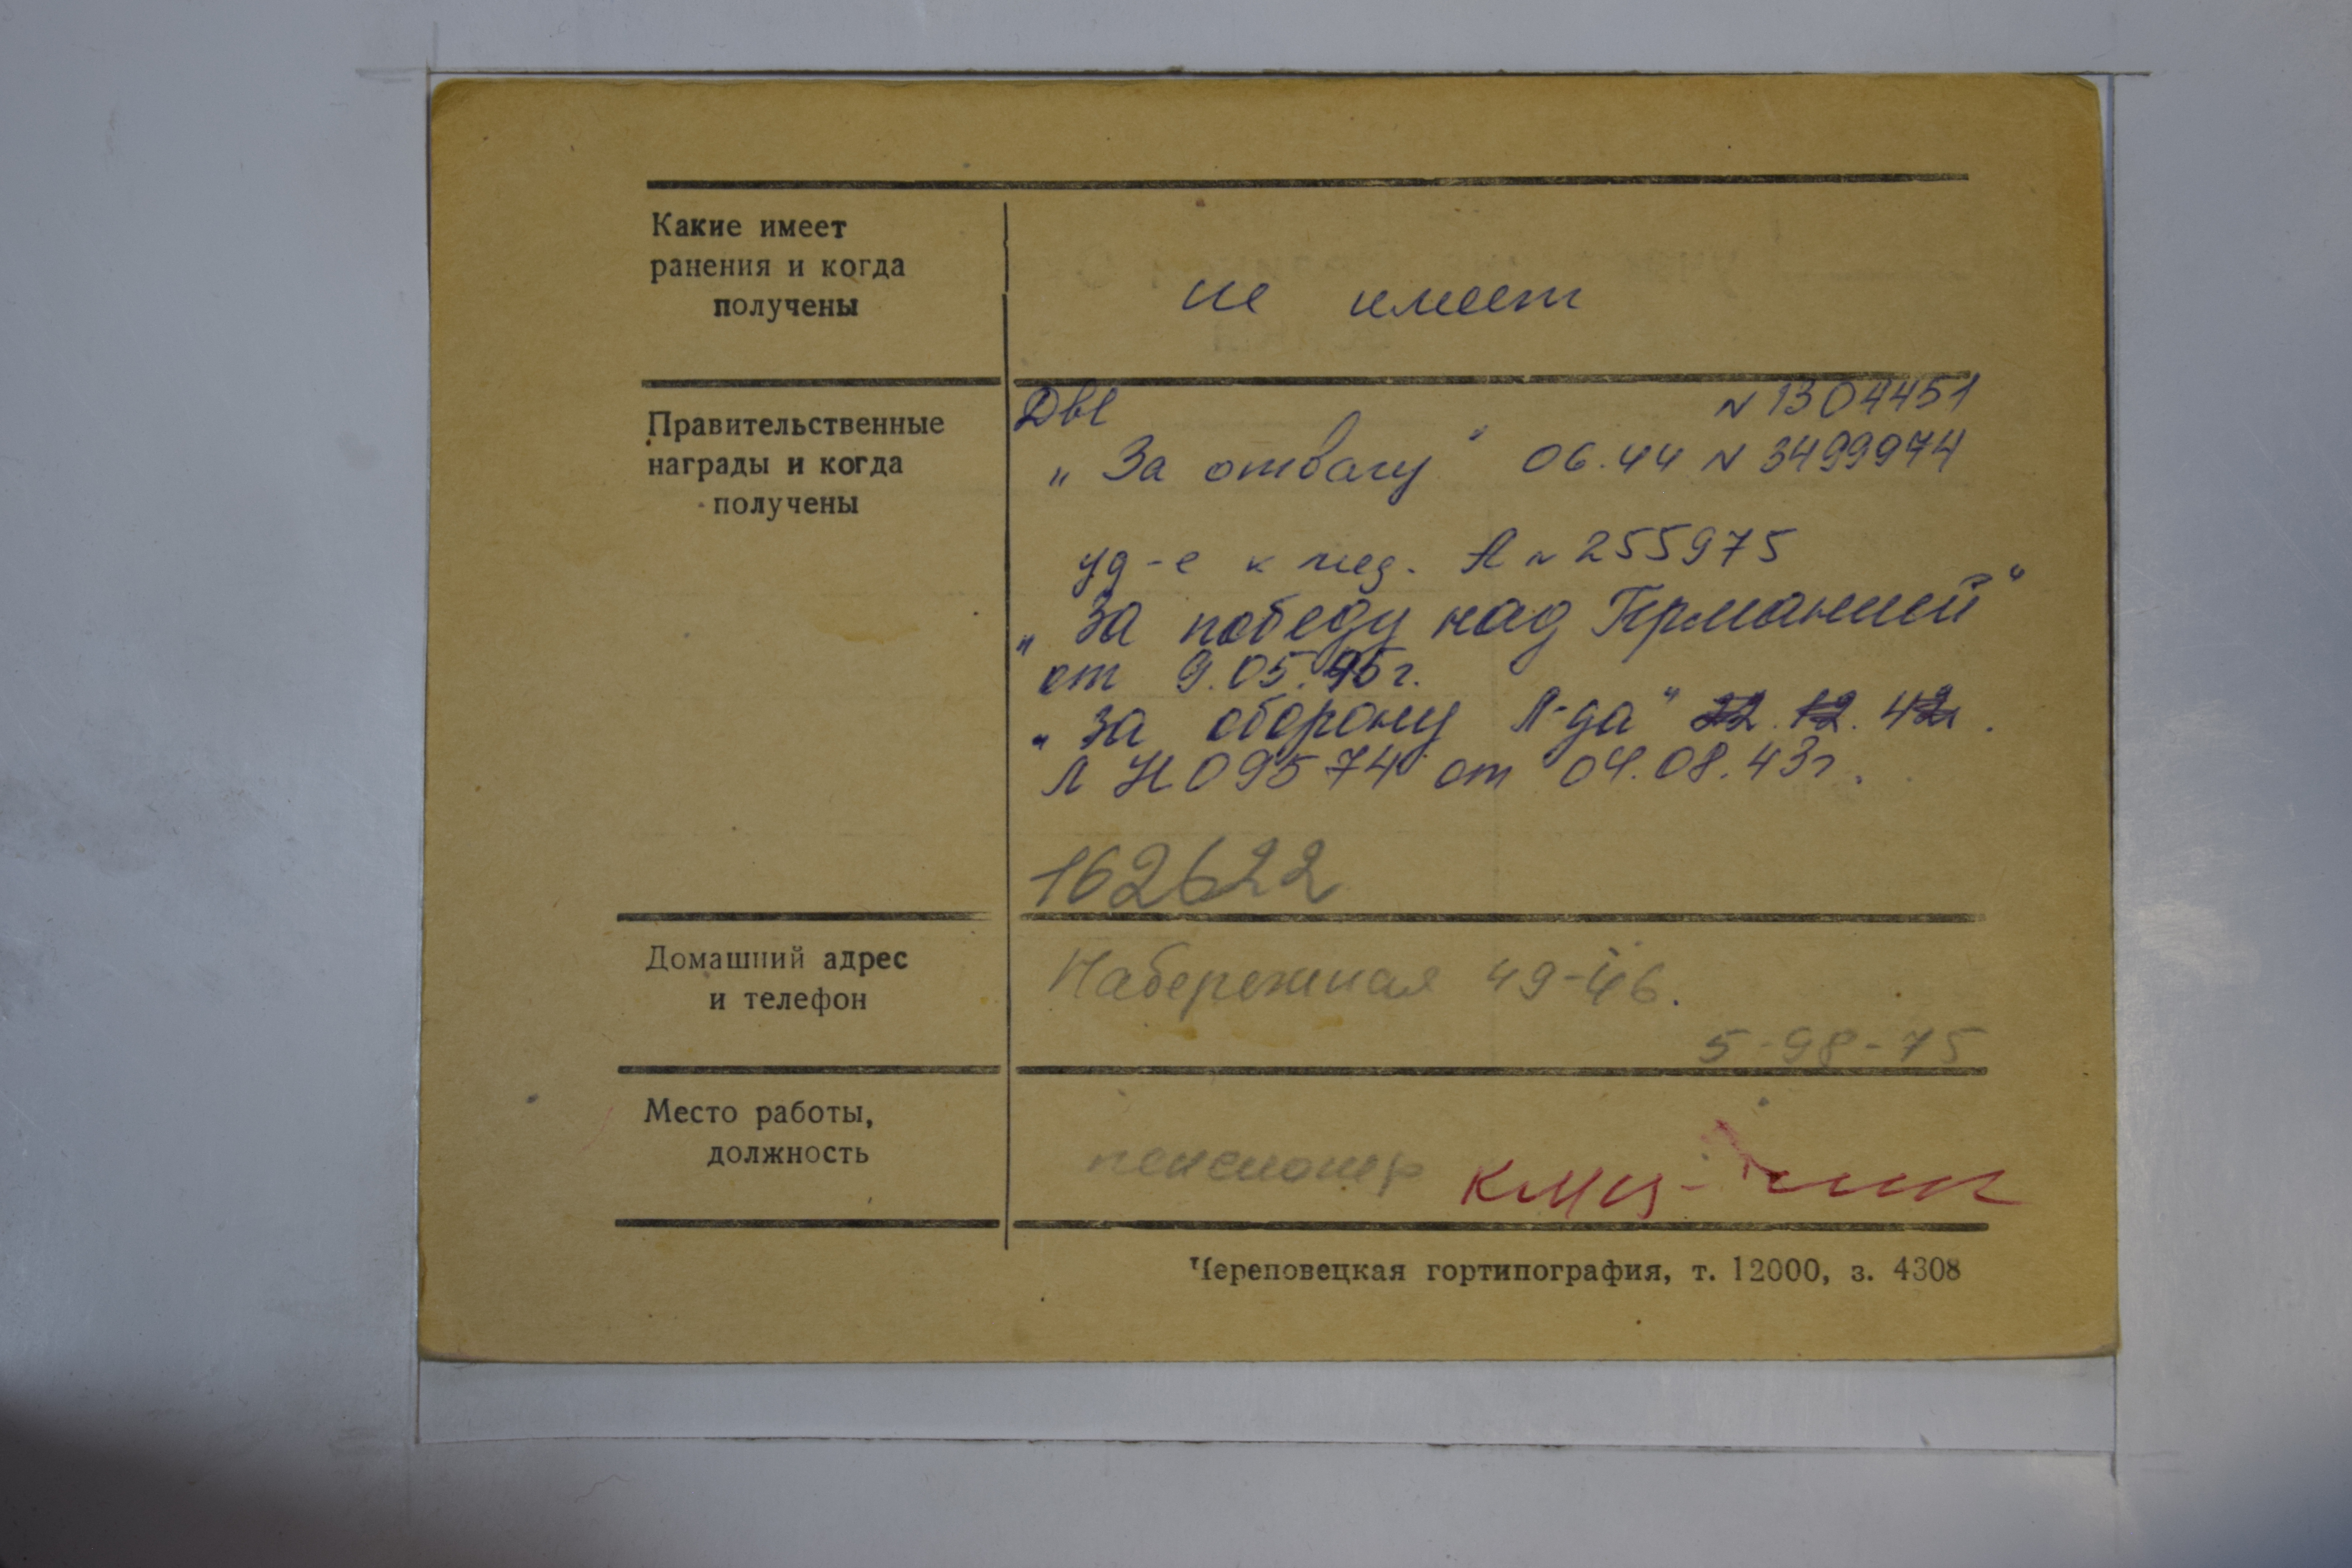 Какие имеет
ранения и когда
получены
не имеет
Правительственные
награды и когда
получены
N 1304451
„За отвагу" 06.44 N 3499974
уд-е к мед. А N 255975
„За победу над Германией"
от 9.05.45г.
„За оборону Л-да" 22.12.42.
Л Н 09574 от 04.08.43г.
162622
Домашний адрес
и телефон
Набережная 49-46.
5-98-75
Место работы,
должность
пенсионер
Череповецкая гортипография, т. 12000, з. 4308